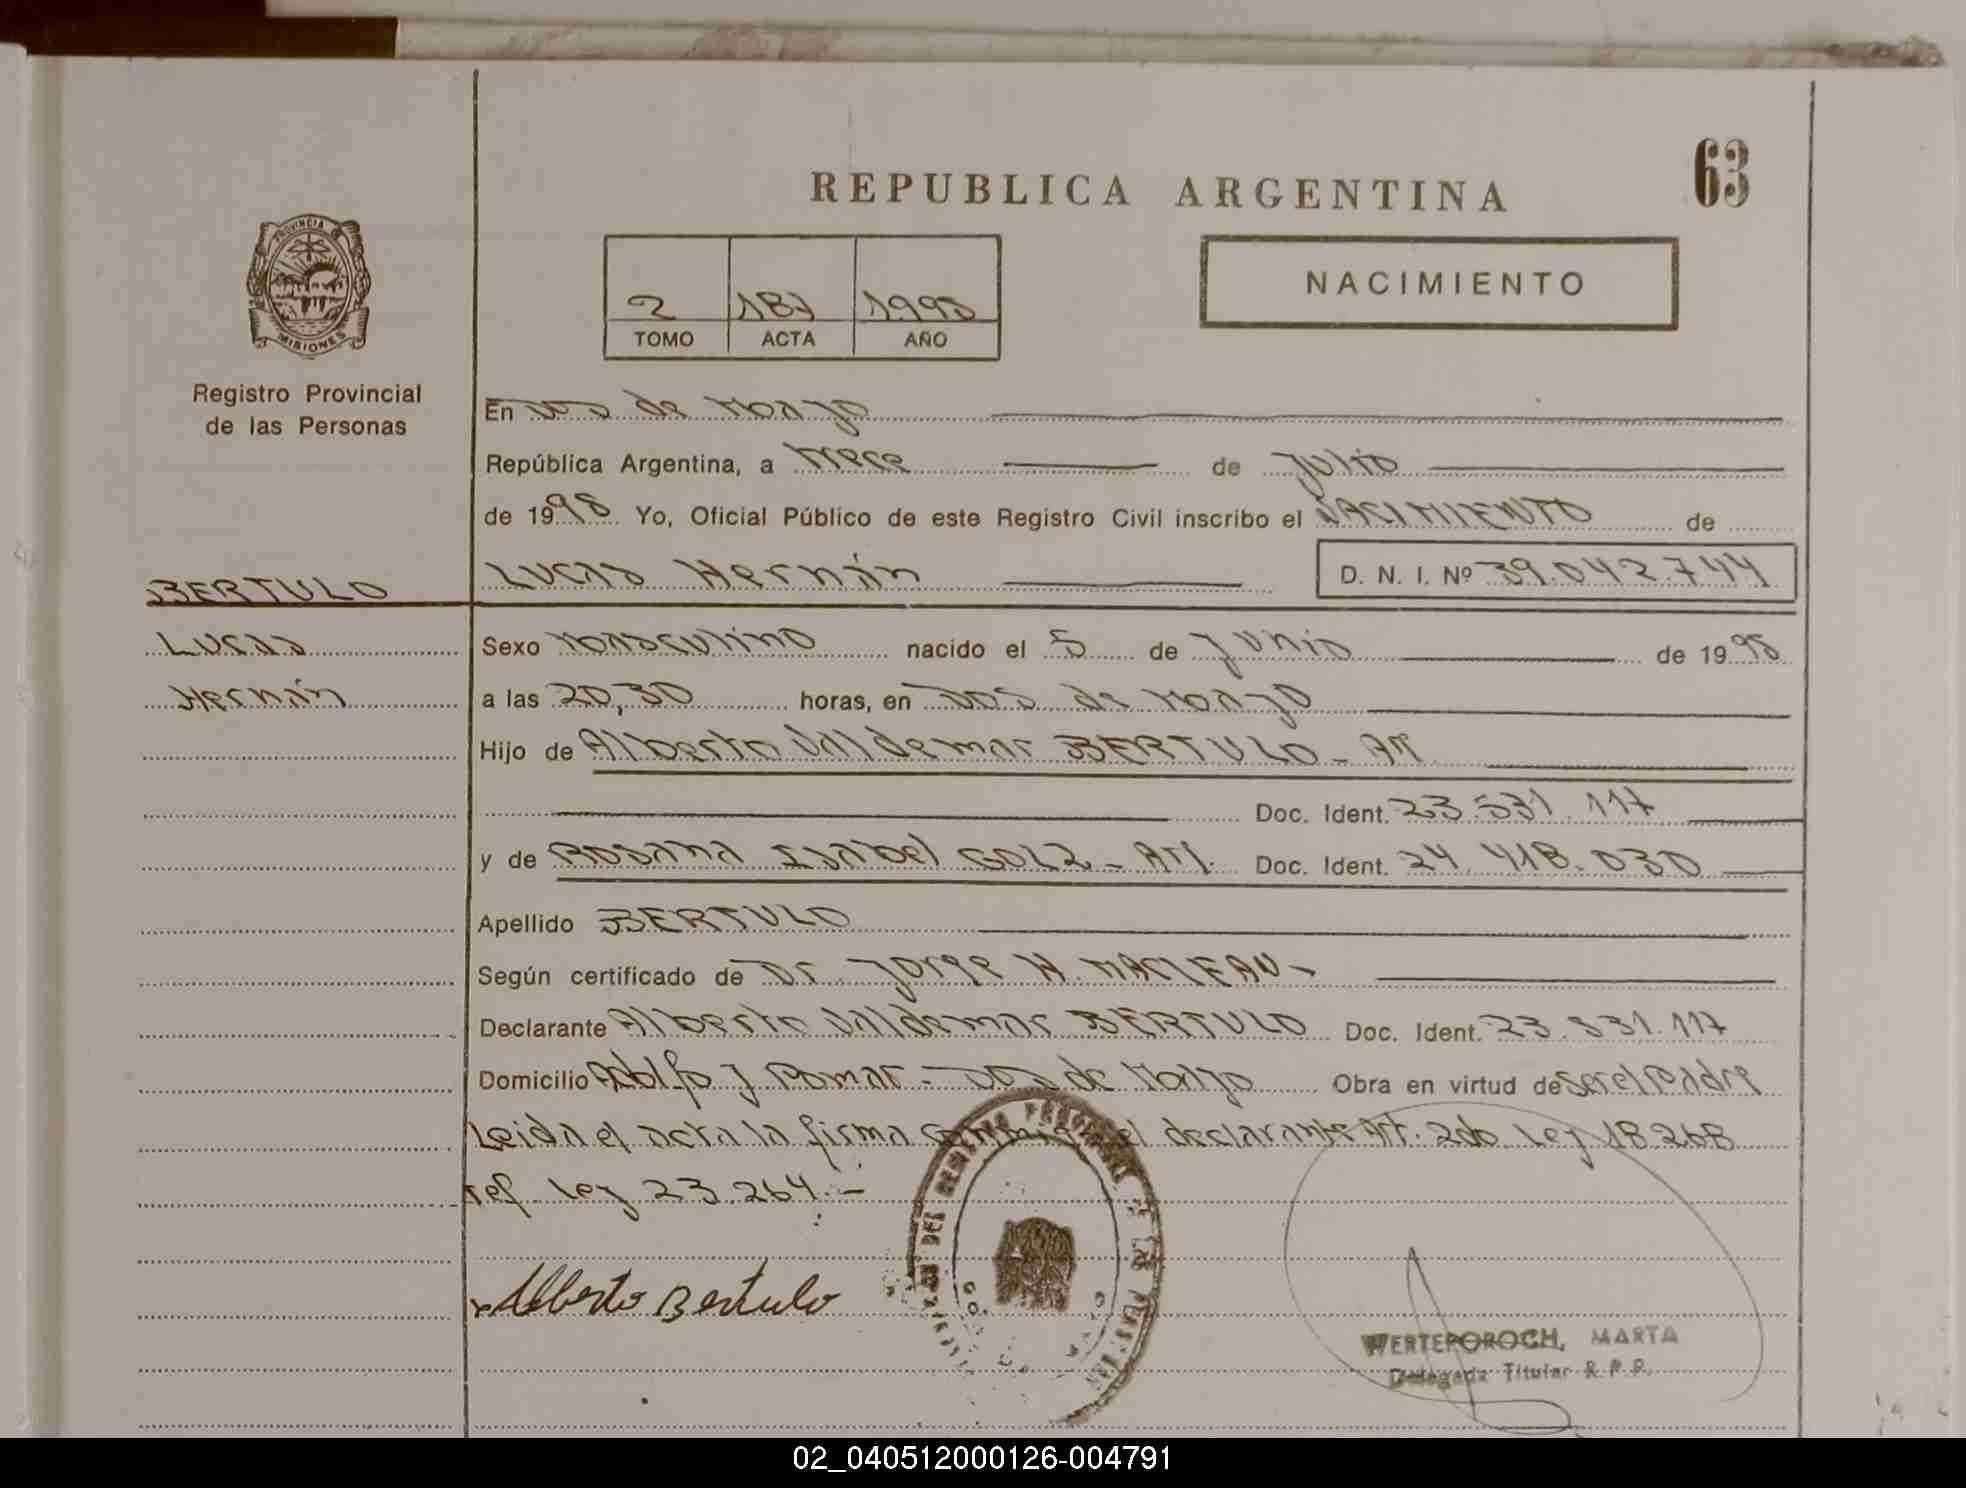 63
REPUBLICA ARGENTINA
NACIMIENTO
2 187 1998
TOMO ACTA AÑO
PROVINCIA DE
MISIONES
Registro Provincial
de las Personas
En Dos de Mayo
República Argentina, a trece de Julio
de 1998 Yo, Oficial Público de este Registro Civil inscribo el NACIMIENTO de
BERTULO
Lucas Hernán D. N. I. Nº 39.042.744
Lucas
Hernán
Sexo Masculino nacido el 5 de Junio de 1998
a las 20,30 horas, en Dos de Mayo
Hijo de Alberto Valdemar BERTULO - Arg
Doc. Ident. 23.531.117
y de Rosana Isabel GOLZ - Arg. Doc. Ident. 24.418.030
Apellido BERTULO
Según certificado de Dr. Jorge H. MACLEAN -
Declarante Alberto Valdemar BERTULO Doc. Ident. 23.531.117
Domicilio Adolfo J Pomar - Dos de Mayo Obra en virtud de ser el Padre
Leida el acta la firma conmigo el declarante Art. 2do Ley 18268
ref Ley 23.264.-
Alberto Bertulo
WERTEPOROCH, MARTA
Delegada Titular R.P.P.
02_040512000126-004791